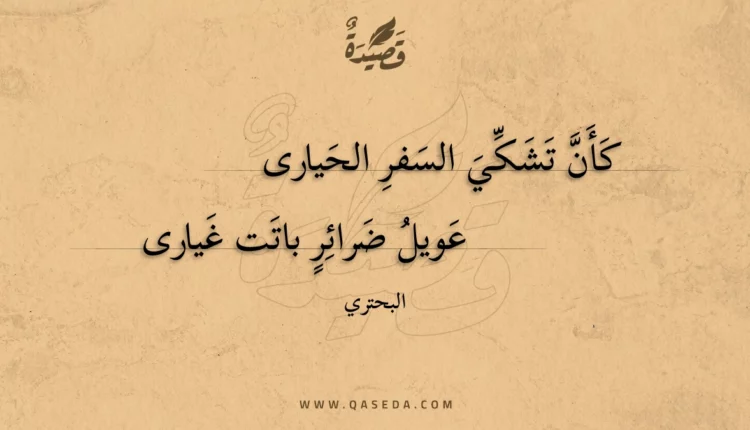 قَصِيْدَةٌ
كَأَنَّ تَشَكِّيَ السَفرِ الحَيارى
عَويلُ ضَرائِرٍ باتَت غَيارى
البحتري
WWW.QASEDA.COM